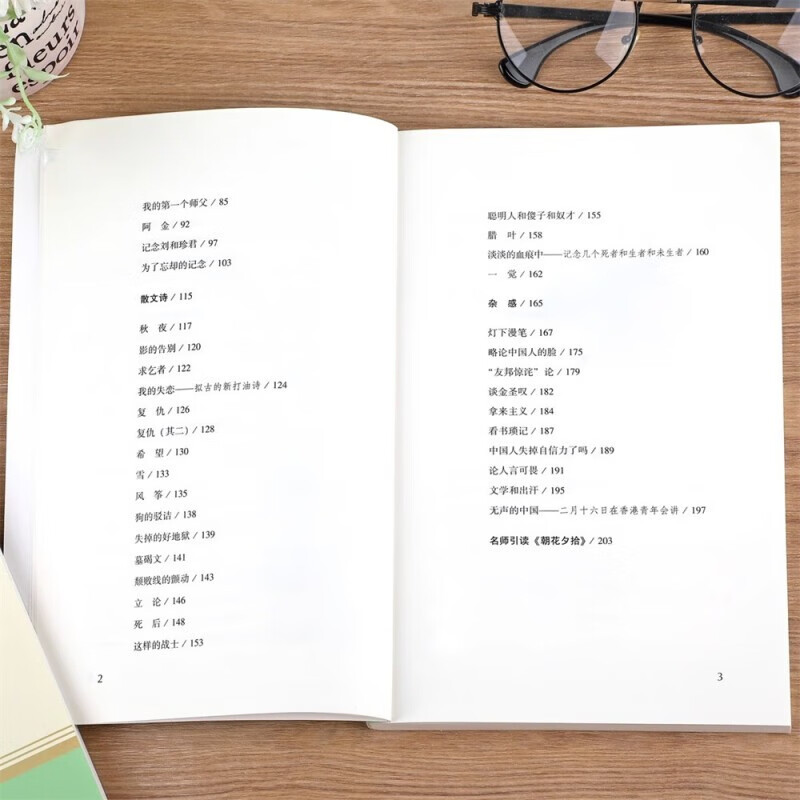 fleurs
espoir
我的第一个师父 / 85
阿 金 / 92
记念刘和珍君 / 97
为了忘却的记念 / 103
散文诗 / 115
秋 夜 / 117
影的告别 / 120
求乞者 / 122
我的失恋——拟古的新打油诗 / 124
复 仇 / 126
复仇（其二） / 128
希 望 / 130
雪 / 133
风 筝 / 135
狗的驳诘 / 138
失掉的好地狱 / 139
墓碣文 / 141
颓败线的颤动 / 143
立 论 / 146
死 后 / 148
这样的战士 / 153
2
聪明人和傻子和奴才 / 155
腊 叶 / 158
淡淡的血痕中——记念几个死者和生者和未生者 / 160
一 觉 / 162
杂 感 / 165
灯下漫笔 / 167
略论中国人的脸 / 175
“友邦惊诧”论 / 179
谈金圣叹 / 182
拿来主义 / 184
看书琐记 / 187
中国人失掉自信力了吗 / 189
论人言可畏 / 191
文学和出汗 / 195
无声的中国——二月十六日在香港青年会讲 / 197
名师引读《朝花夕拾》 / 203
3